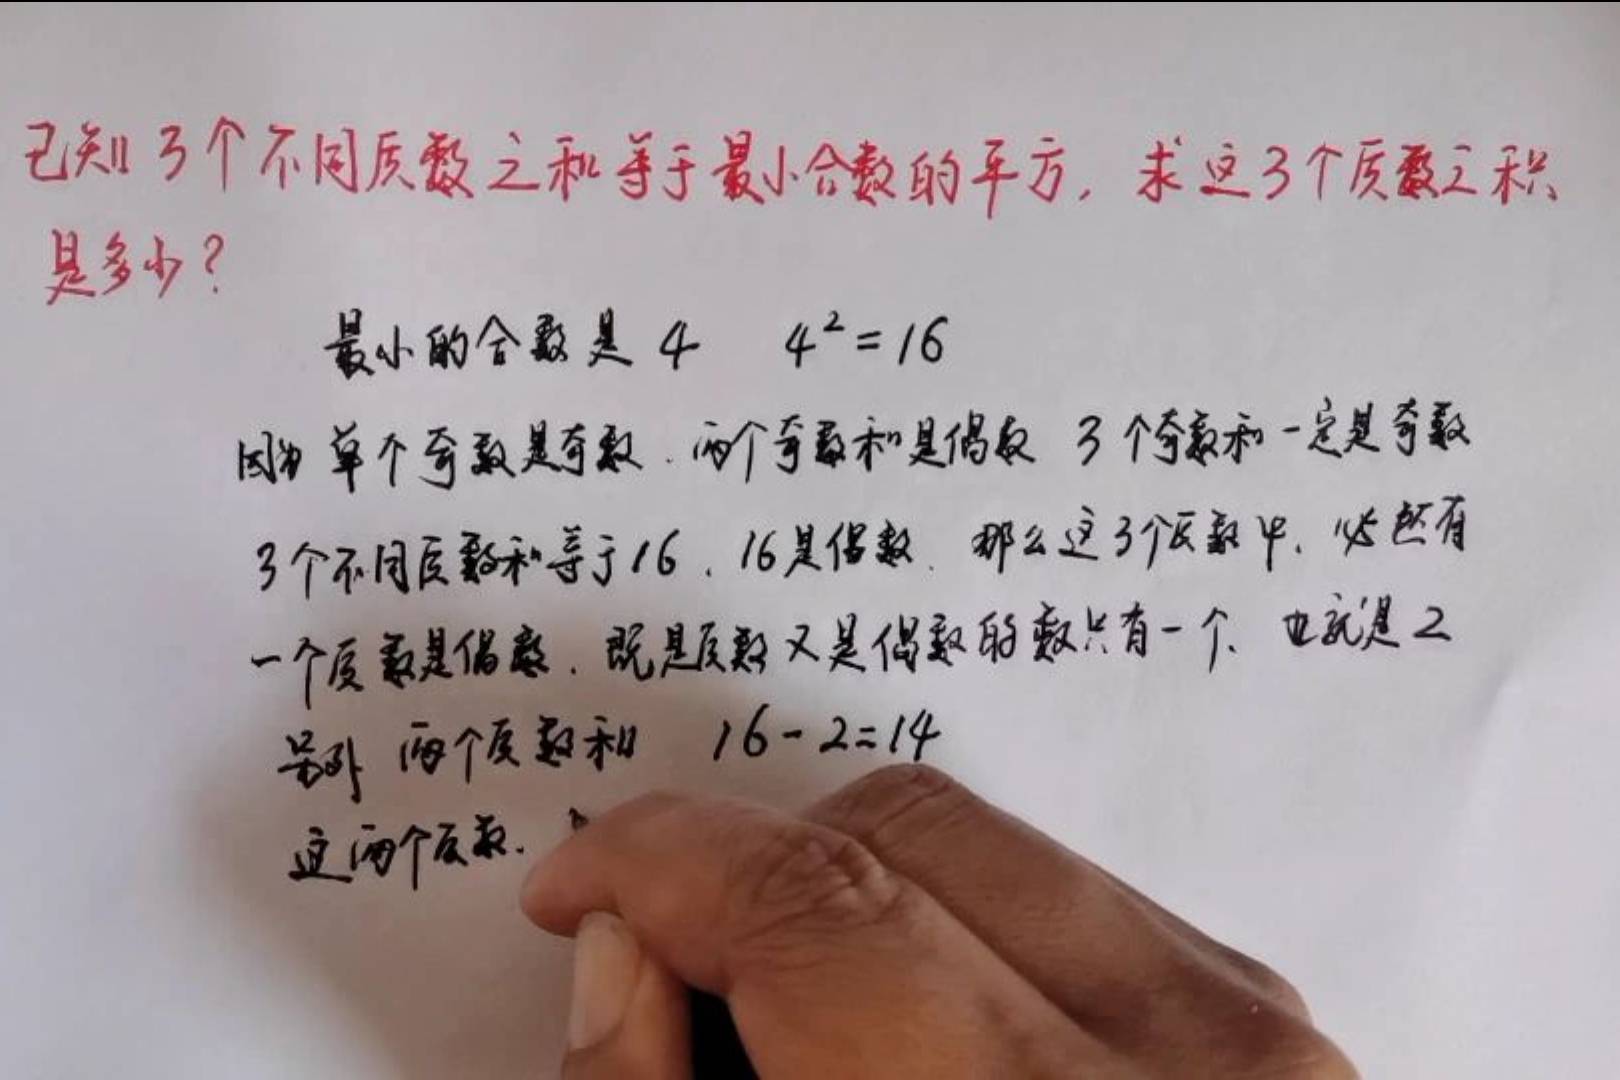 已知3个不同质数之和等于最小合数的平方,求这3个质数之积
是多少?
最小的合数是4 4²=16
因为单个奇数是奇数.两个奇数和是偶数 3个奇数和一定是奇数
3个不同质数和等于16.16是偶数.那么这3个质数中、必然有
一个质数是偶数.既是质数又是偶数的数只有一个、也就是2
另外两个质数和 16-2=14
这两个质数.